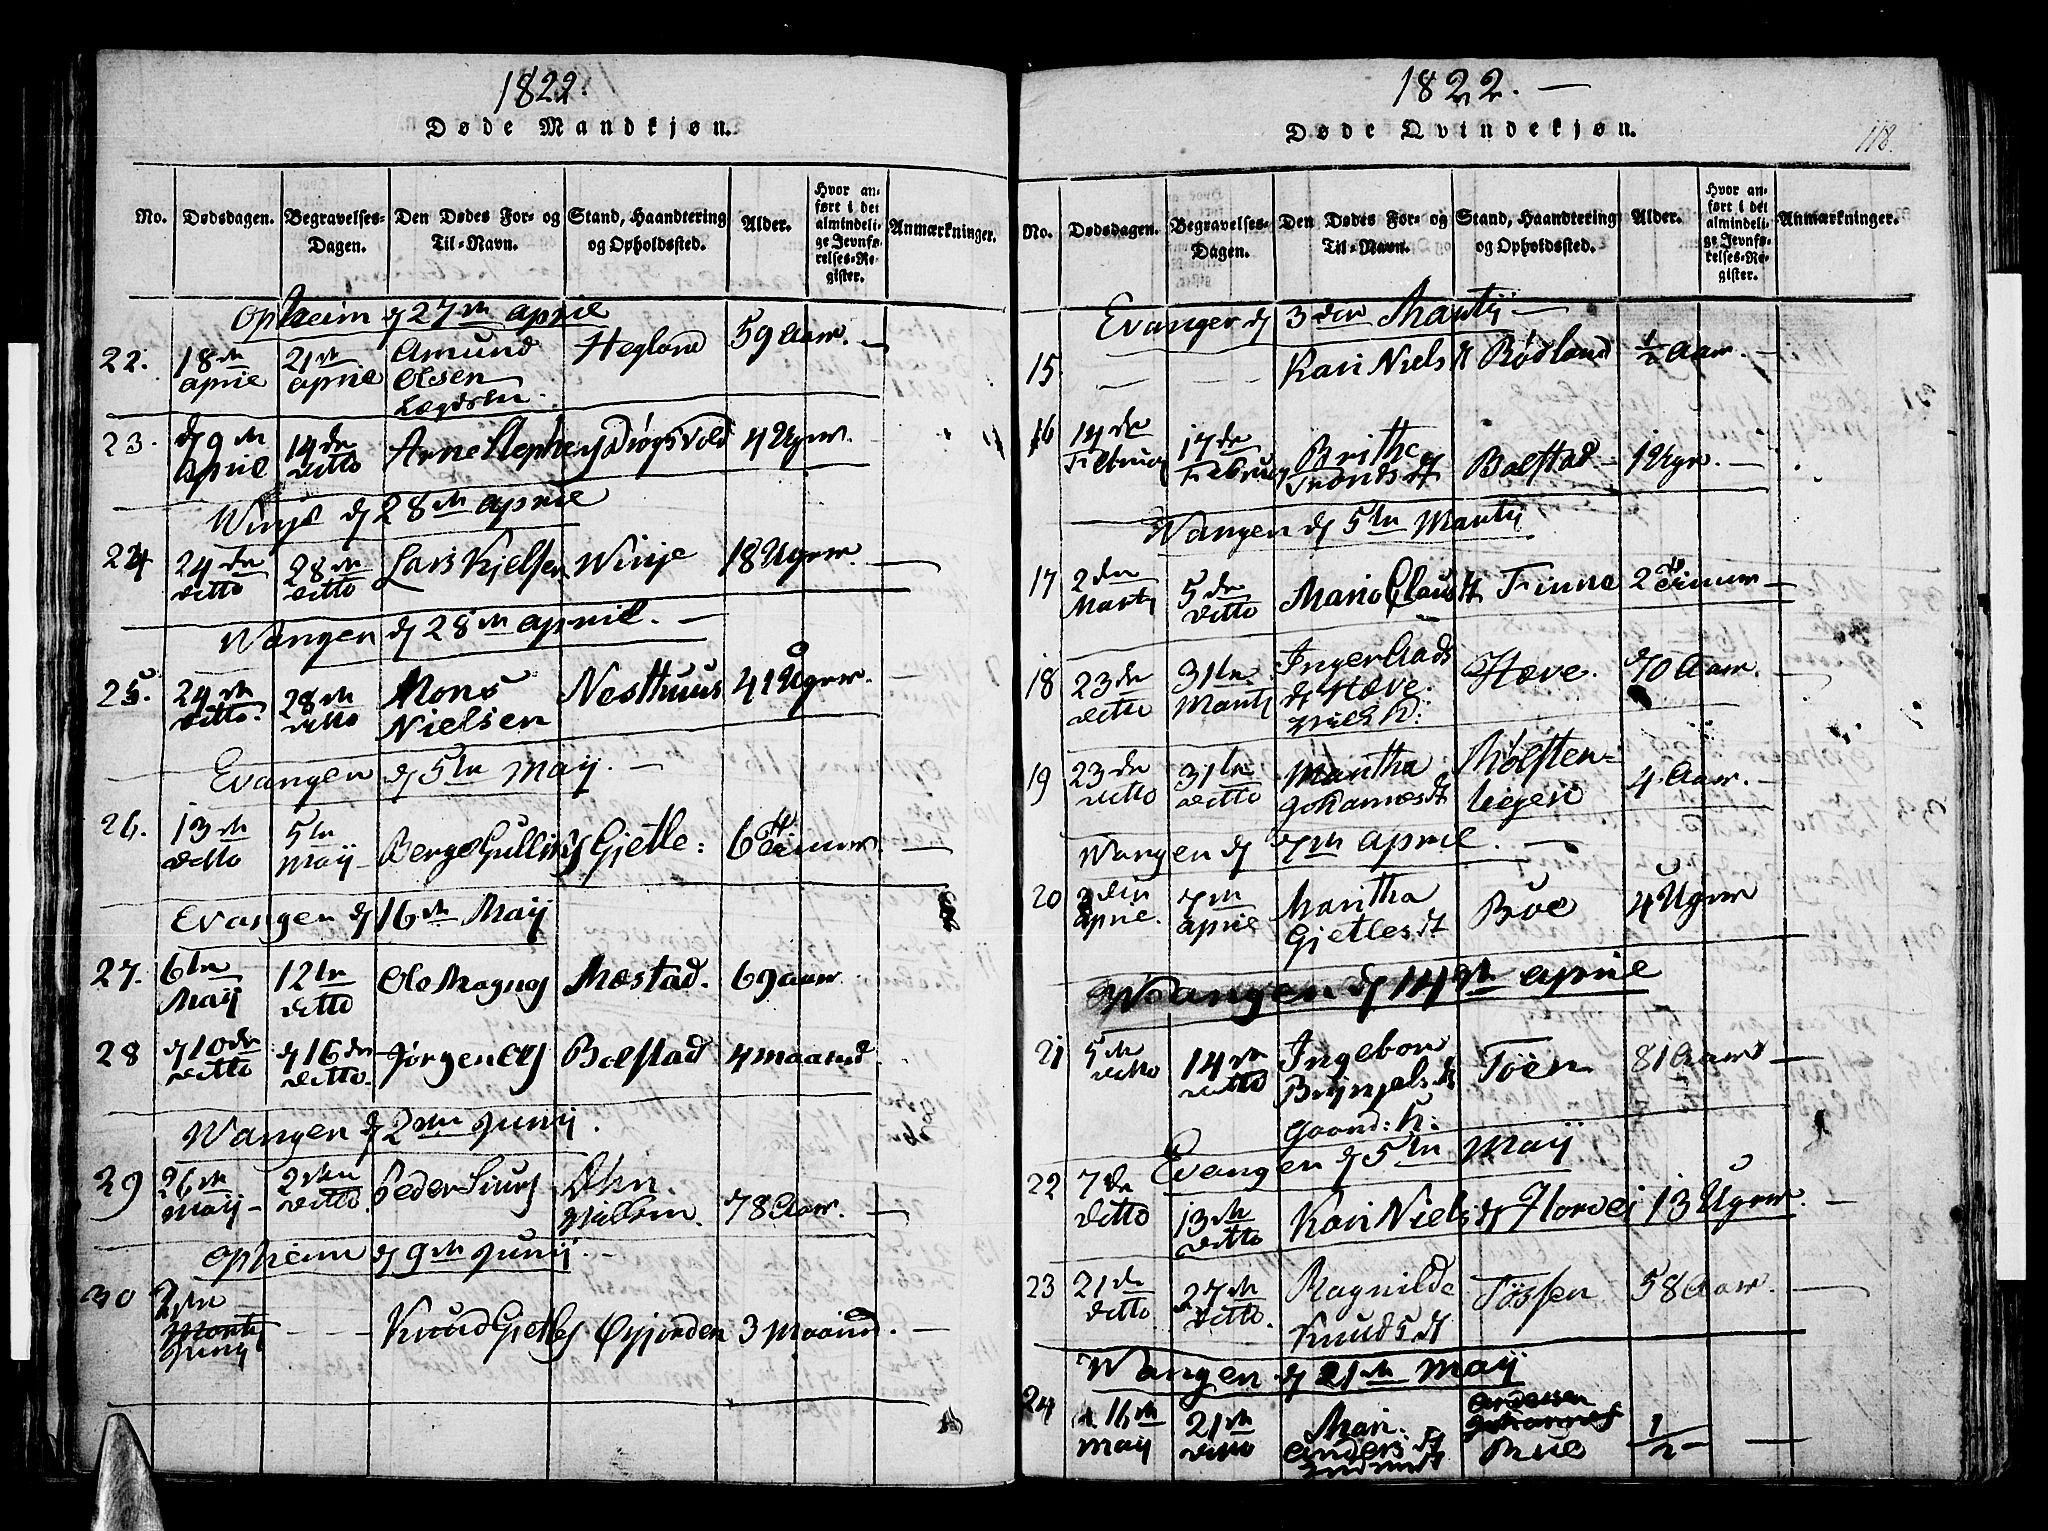 1822.
Døde Mandkjøn.
No.
Dødsdagen.
Begravelses-
Dagen.
Den Dødes For- og
Til-Navn.
Stand, Haandtering
og Opholdssted.
Alder.
Hvor an-
ført i det
almindeli-
ge Jevnfø-
relses-Re-
gister.
Anmærkninger.
Opheim d 27de april
22. 18de april 21de april Amund Olsen Hegland 59 Aar.
23. d 9de april 14de ditto Arne Stephens 4 Uger.
Winje d 28de april
24 24de ditto 28de ditto Lars Kjelsen Winje 18 Uger.
Wangen d 28de april.
25. 24de ditto. 28de ditto Mons Nielsen Nesthuus 41 Uger.
Evangen d 5te Maij.
26. 13de ditto 5te Maij Berge Gullix Gjetle: 6
Evangen d 16de Maij
27. 6te Maij 12te ditto Ole Magnes Mæstad. 69 aar
28 d 10de ditto d 16de ditto. Jørgen Ols Bolstad 4 maaned
Wangen d 2den Junij.
29 26de Maij 2den ditto. Peder Siurs 78 Aar.
Opheim d 9de Junij
30 2den Junij Knud Gjetles Øyjorden 3 Maaned.
1822.
Døde Qvindekjøn.
118.
No.
Dødsdagen.
Begravelses-
Dagen.
Den Dødes For- og
Til-Navn.
Stand, Haandtering
og Opholdssted.
Alder.
Hvor an-
ført i det
almindeli-
ge Jevnfø-
relses-Re-
gister.
Anmærkninger.
Evanger d 3den Martij
15 Kari Niels d Rødland 1/2 Aar.
16 14de Februarij 17de Februarij Brithe Tronds d Bolstad 1 Uger.
Wangen d 5te Martij
17 2den Martij 5te ditto Mari Claus d Finne 2 Timer
18 23de ditto 31te Martij Inger Aads d Hæve. Hæve. 70 Aar.
19 23de ditto 31te ditto Martha Johannes d Mølsten- 4 Aar.
Wangen d 7de april.
20 3den april. 7de april Maritha Gjetles d Böe 4 Uger
Wangen d 14de april
21 5te ditto 14de ditto Ingebor Brynjels d Töen 81 Aar
Evangen d 5te Maij
22 7de ditto 13de ditto Kari Niels d Horvei 13 Uger.
23 21de ditto 27de ditto. Ragnilde Knuds d Tössen 58 Aar.
Wangen d 21de Maij
24 16de Maij 21de ditto Mari Anders d 1/2